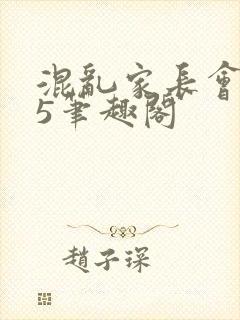 混亂家長會
5筆趣閣
趙子琛